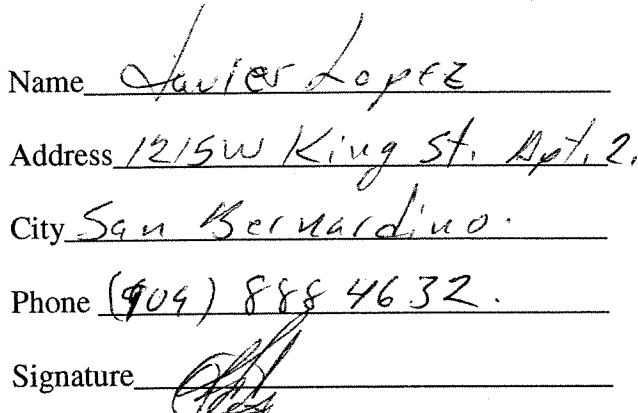 Name Javier Lopez
Address 1215 W King St. Apt. 2.
City San Bernardino.
Phone (909) 888 4632.
Signature